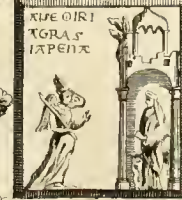 AISE OIRI
AGRAS
IAPENA